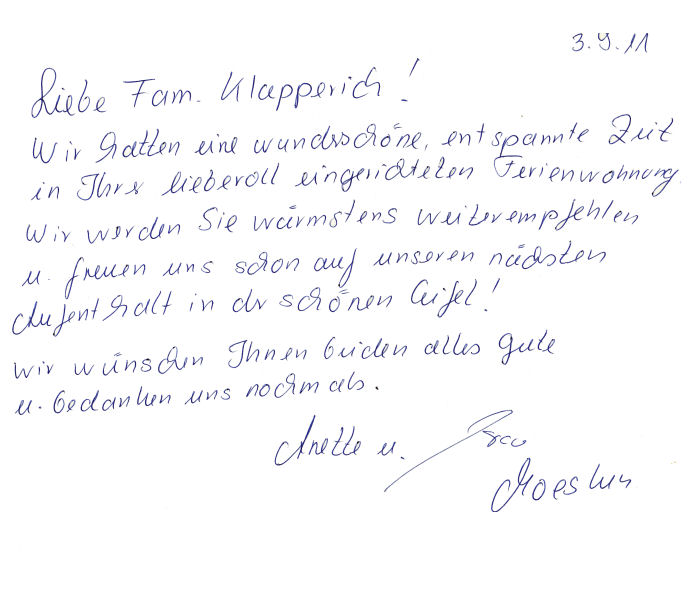 3.9.11
Liebe Fam. Klapperich!
Wir hatten eine wunderschöne, entspannte Zeit
in Ihrer liebevoll eingerichteten Ferienwohnung.
Wir werden Sie wärmstens weiterempfehlen
u. freuen uns schon auf unseren nächsten
Aufenthalt in der schönen Eifel!
Wir wünschen Ihnen beiden alles Gute
u. bedanken uns nochmals.
Anette u.